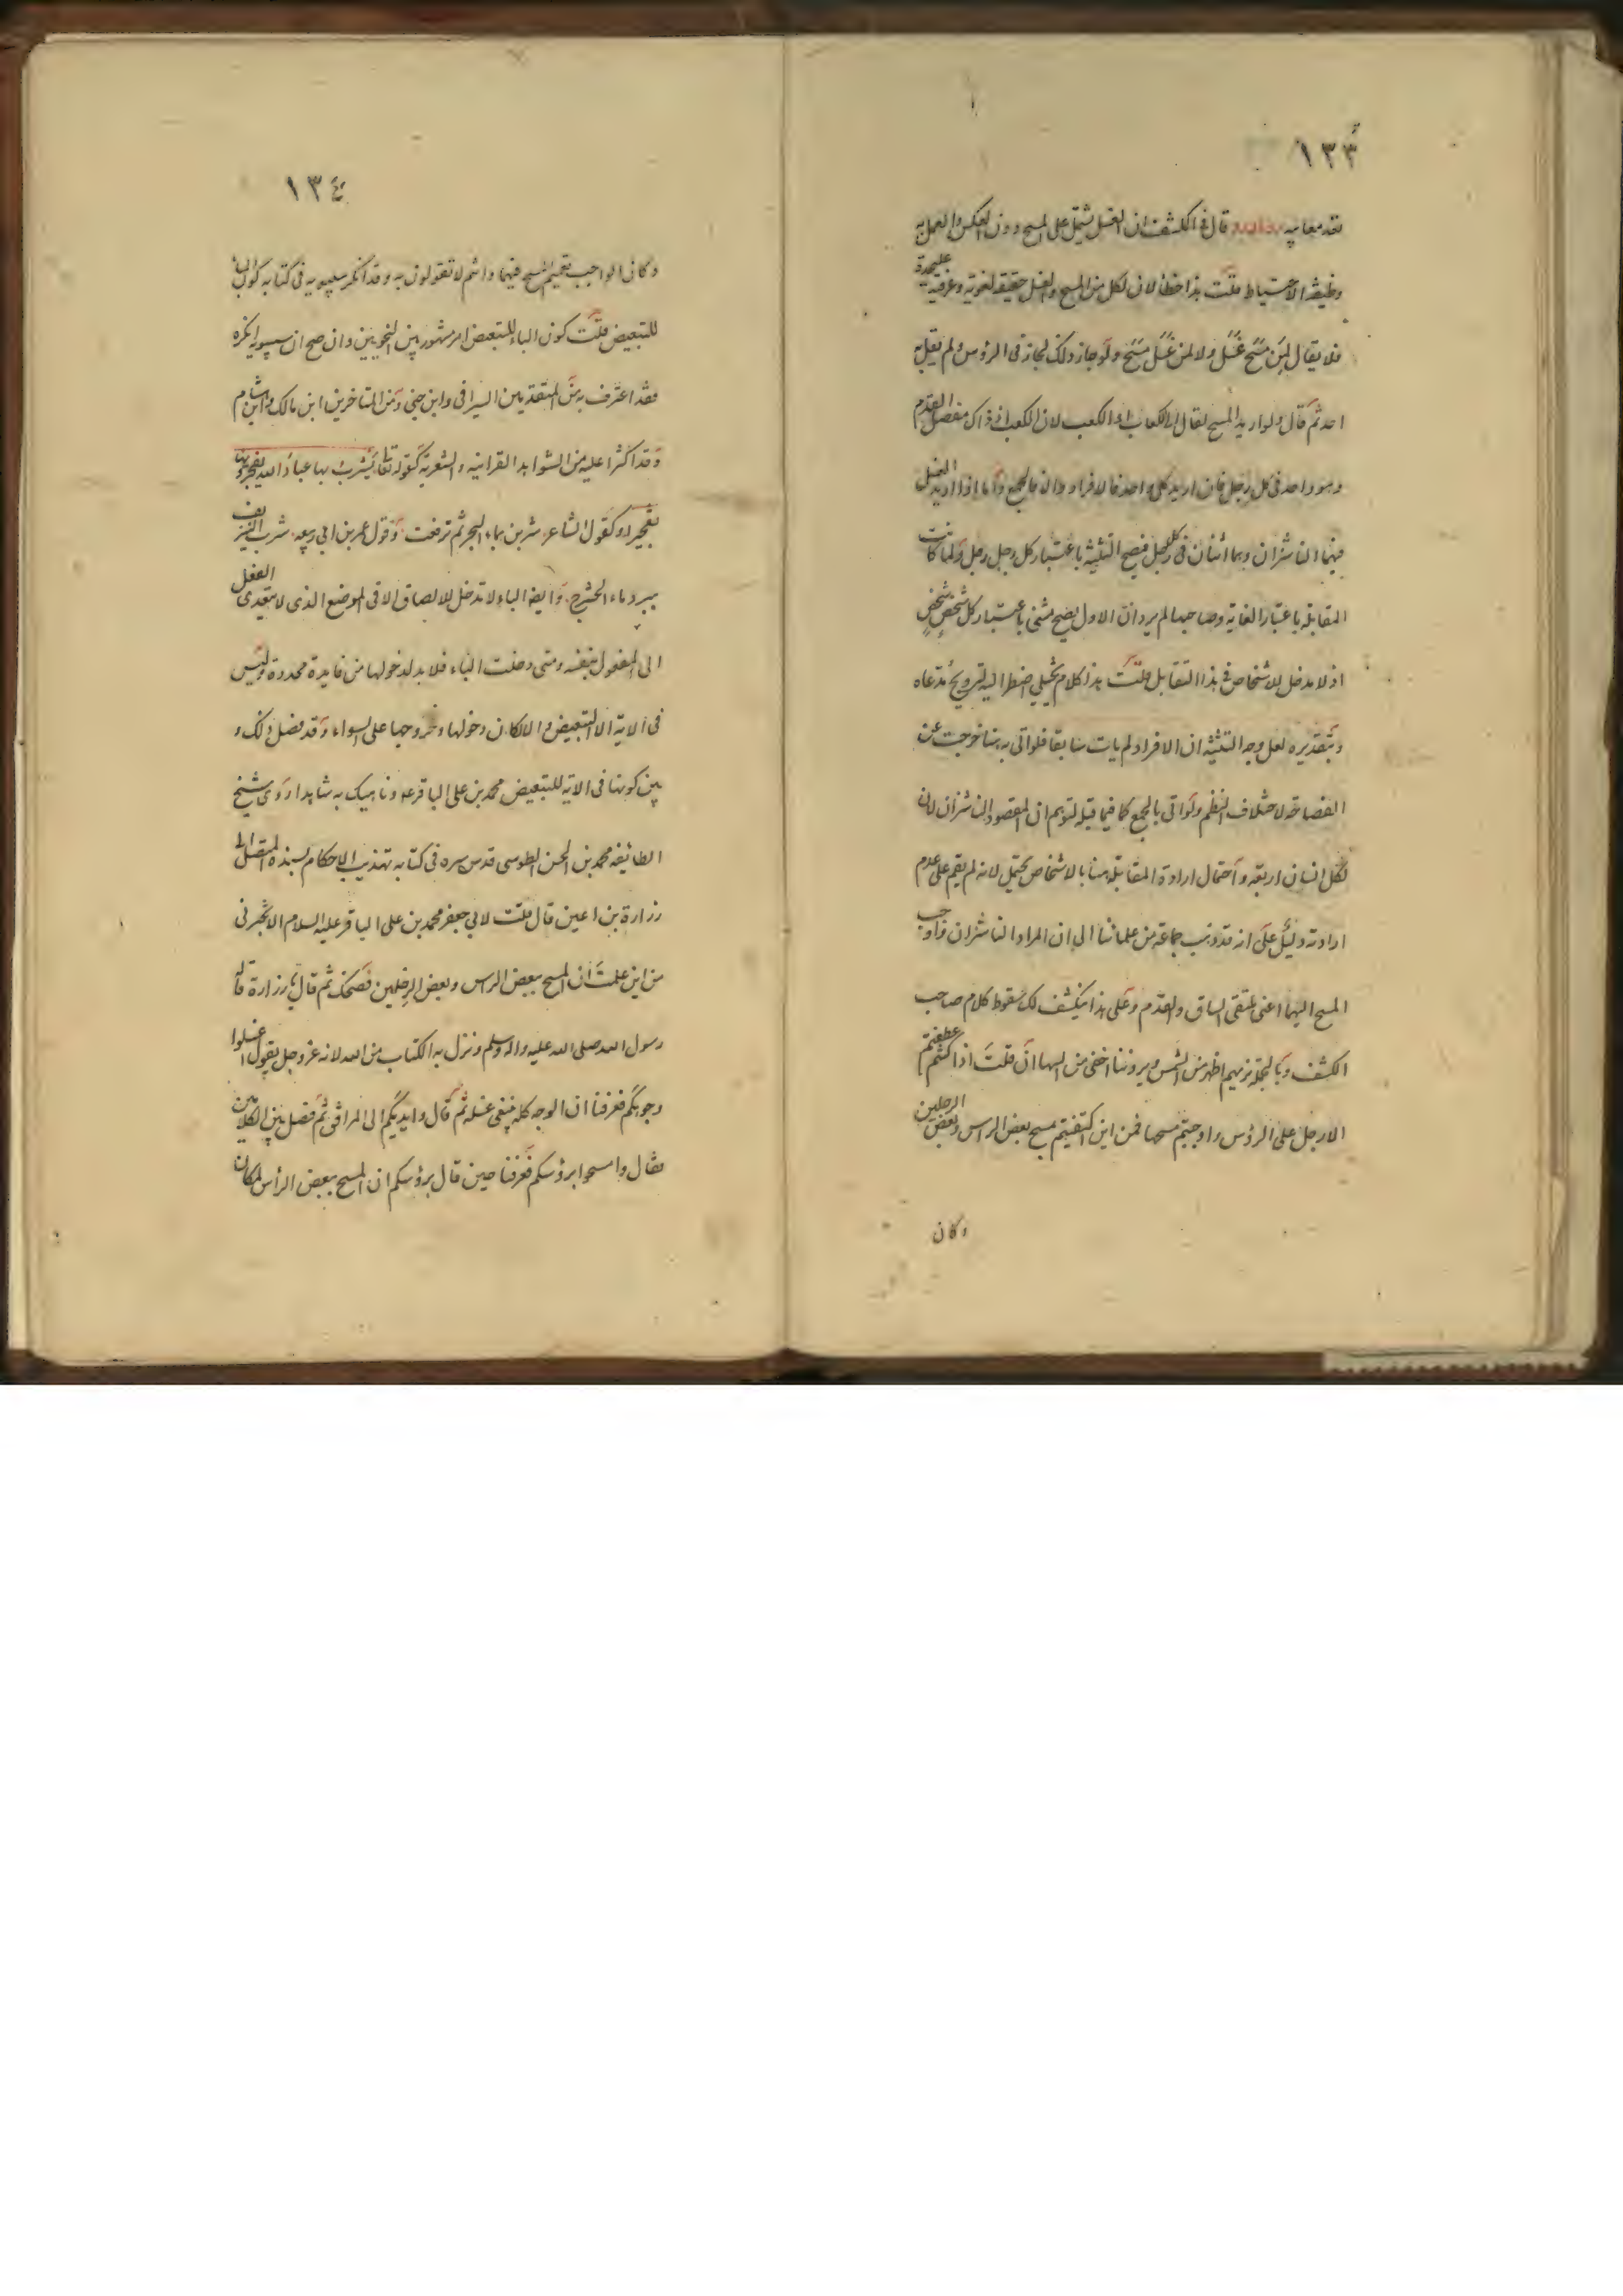 ١٣٣
قال في الكشف ان الغسل يشتمل على المسح دون العكس والعمل به
وظيفة الاحتياط قلت هذا خطأ لان لكل من المسح والغسل حقيقة لغوية وعرفية عليحدة
فلا يقال لمن مسح غسل ولا لمن غسل مسح ولو جاز ذلك لجاز في الرؤس ولم يقل به
احد ثم قال ولو اريد المسح لقال الى الكعاب او الكعب لان الكعب اذ ذاك مفصل القدم
وهو واحد في كل رجل فان اريد كل واحد فالافراد والا فالجمع واما اذا اريد الغسل
فهما الناشزان وهما اثنان في كل رجل فيصح التثنية باعتبار كل رجل رجل ولما كانت
المقابلة باعتبار الغاية وصاحبها لم يرد ان الاول يصح مثنى باعتبار كل شخص شخص
اذ لا مدخل للاشخاص في هذا التقابل قلت هذا كلام تخيلي اضطر اليه لترويج مدعاه
وبتقديره لعل وجه التثنية ان الافراد لم يات سابقا فلو اتى به هنا خرجت عن
الفصاحة لاختلاف النظم ولو اتى بالجمع كما فيما قبله لتوهم ان المقصود الناشزان لان
لكل انسان اربعة واحتمال ارادة المقابلة هنا بالاشخاص محتمل لانه لم يقم على عدم
ارادته دليل على انه قد ذهب جماعة من علمائنا الى ان المراد الناشزان واوجب
المسح اليهما اعنى ملتقى الساق والقدم وعلى هذا ينكشف لك سقوط كلام صاحب
الكشف وبالجملة اظهر من الشمس اخفى من السها ان قلت اذا كنتم عطفتم
الارجل على الرؤس واوجبتم مسحها فمن اين اكتفيتم بمسح بعض الراس وبعض الرجلين
وكان
١٣٤
وكان الواجب تعميم المسح فيهما وانتم لا تقولون به وقد انكر سيبويه في كتابه كون الباء
للتبعيض قلت كون الباء للتبعيض امر مشهور بين النحويين وان صح ان سيبويه انكره
فقد اعترف به من المتقدمين السيرافي وابن جني ومن المتاخرين ابن مالك وابن هشام
وقد اكثرا عليه من الشواهد القرانية والشعرية كقوله تعا يشرب بها عباد الله يفجرونها
تفجيرا وكقول الشاعر شربن بماء البحر ثم ترفعت وقول عمر بن ابي ربيعه شرب النزيف
ببرد ماء الحشرج وايضا الباء لا تدخل للالصاق الا في الموضع الذي لا يتعدى الفعل
الى المفعول بنفسه ومتى دخلت الباء فلا بد لدخولها من فايدة مجددة وليس
في الاية الا التبعيض والا لكان دخولها وخروجها على السواء وقد فصل ذلك و
بين كونها في الاية للتبعيض محمد بن على الباقر ع وناهيك به شاهدا روى شيخ
الطائفه محمد بن الحسن الطوسى قدس سره في كتابه تهذيب الاحكام بسنده المتصل الى
زرارة بن اعين قال قلت لابي جعفر محمد بن على الباقر عليه السلام الا تخبرني
من اين علمت ان المسح ببعض الراس وبعض الرجلين فضحك ثم قال يا زرارة قاله
رسول الله صلى الله عليه واله وسلم ونزل به الكتاب من الله لانه عز وجل يقول اغسلوا
وجوهكم فعرفنا ان الوجه كله ينبغي غسله ثم قال وايديكم الى المرافق ثم فصل بين الكلامين
فقال وامسحوا برؤسكم فعرفنا حين قال برؤسكم ان المسح ببعض الرأس لمكان